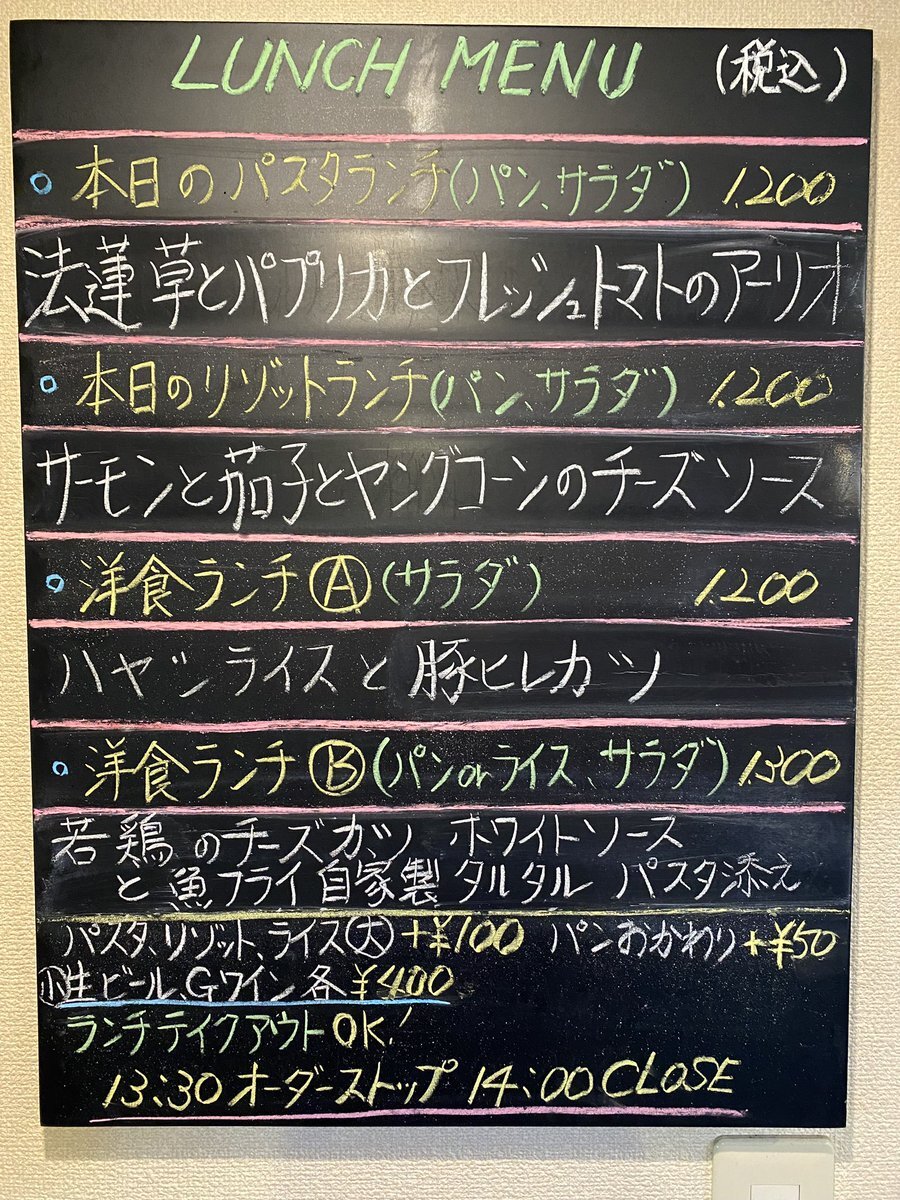 LUNCH MENU (税込)
本日のパスタランチ(パン、サラダ) 1.200
法蓮草とパプリカとフレッシュトマトのアーリオ
本日のリゾットランチ(パン、サラダ) 1.200
サーモンと茄子とヤングコーンのチーズソース
洋食ランチⒶ(サラダ) 1.200
ハヤシライスと豚ヒレカツ
洋食ランチⒷ(パンorライス、サラダ) 1.300
若鶏のチーズカツ ホワイトソース
と魚フライ自家製タルタル パスタ添え
パスタ、リゾット、ライス(大)+¥100 パンおかわり+¥50
(小)生ビール、Gワイン各¥400
ランチテイクアウトOK!
13:30オーダーストップ 14:00CLOSE